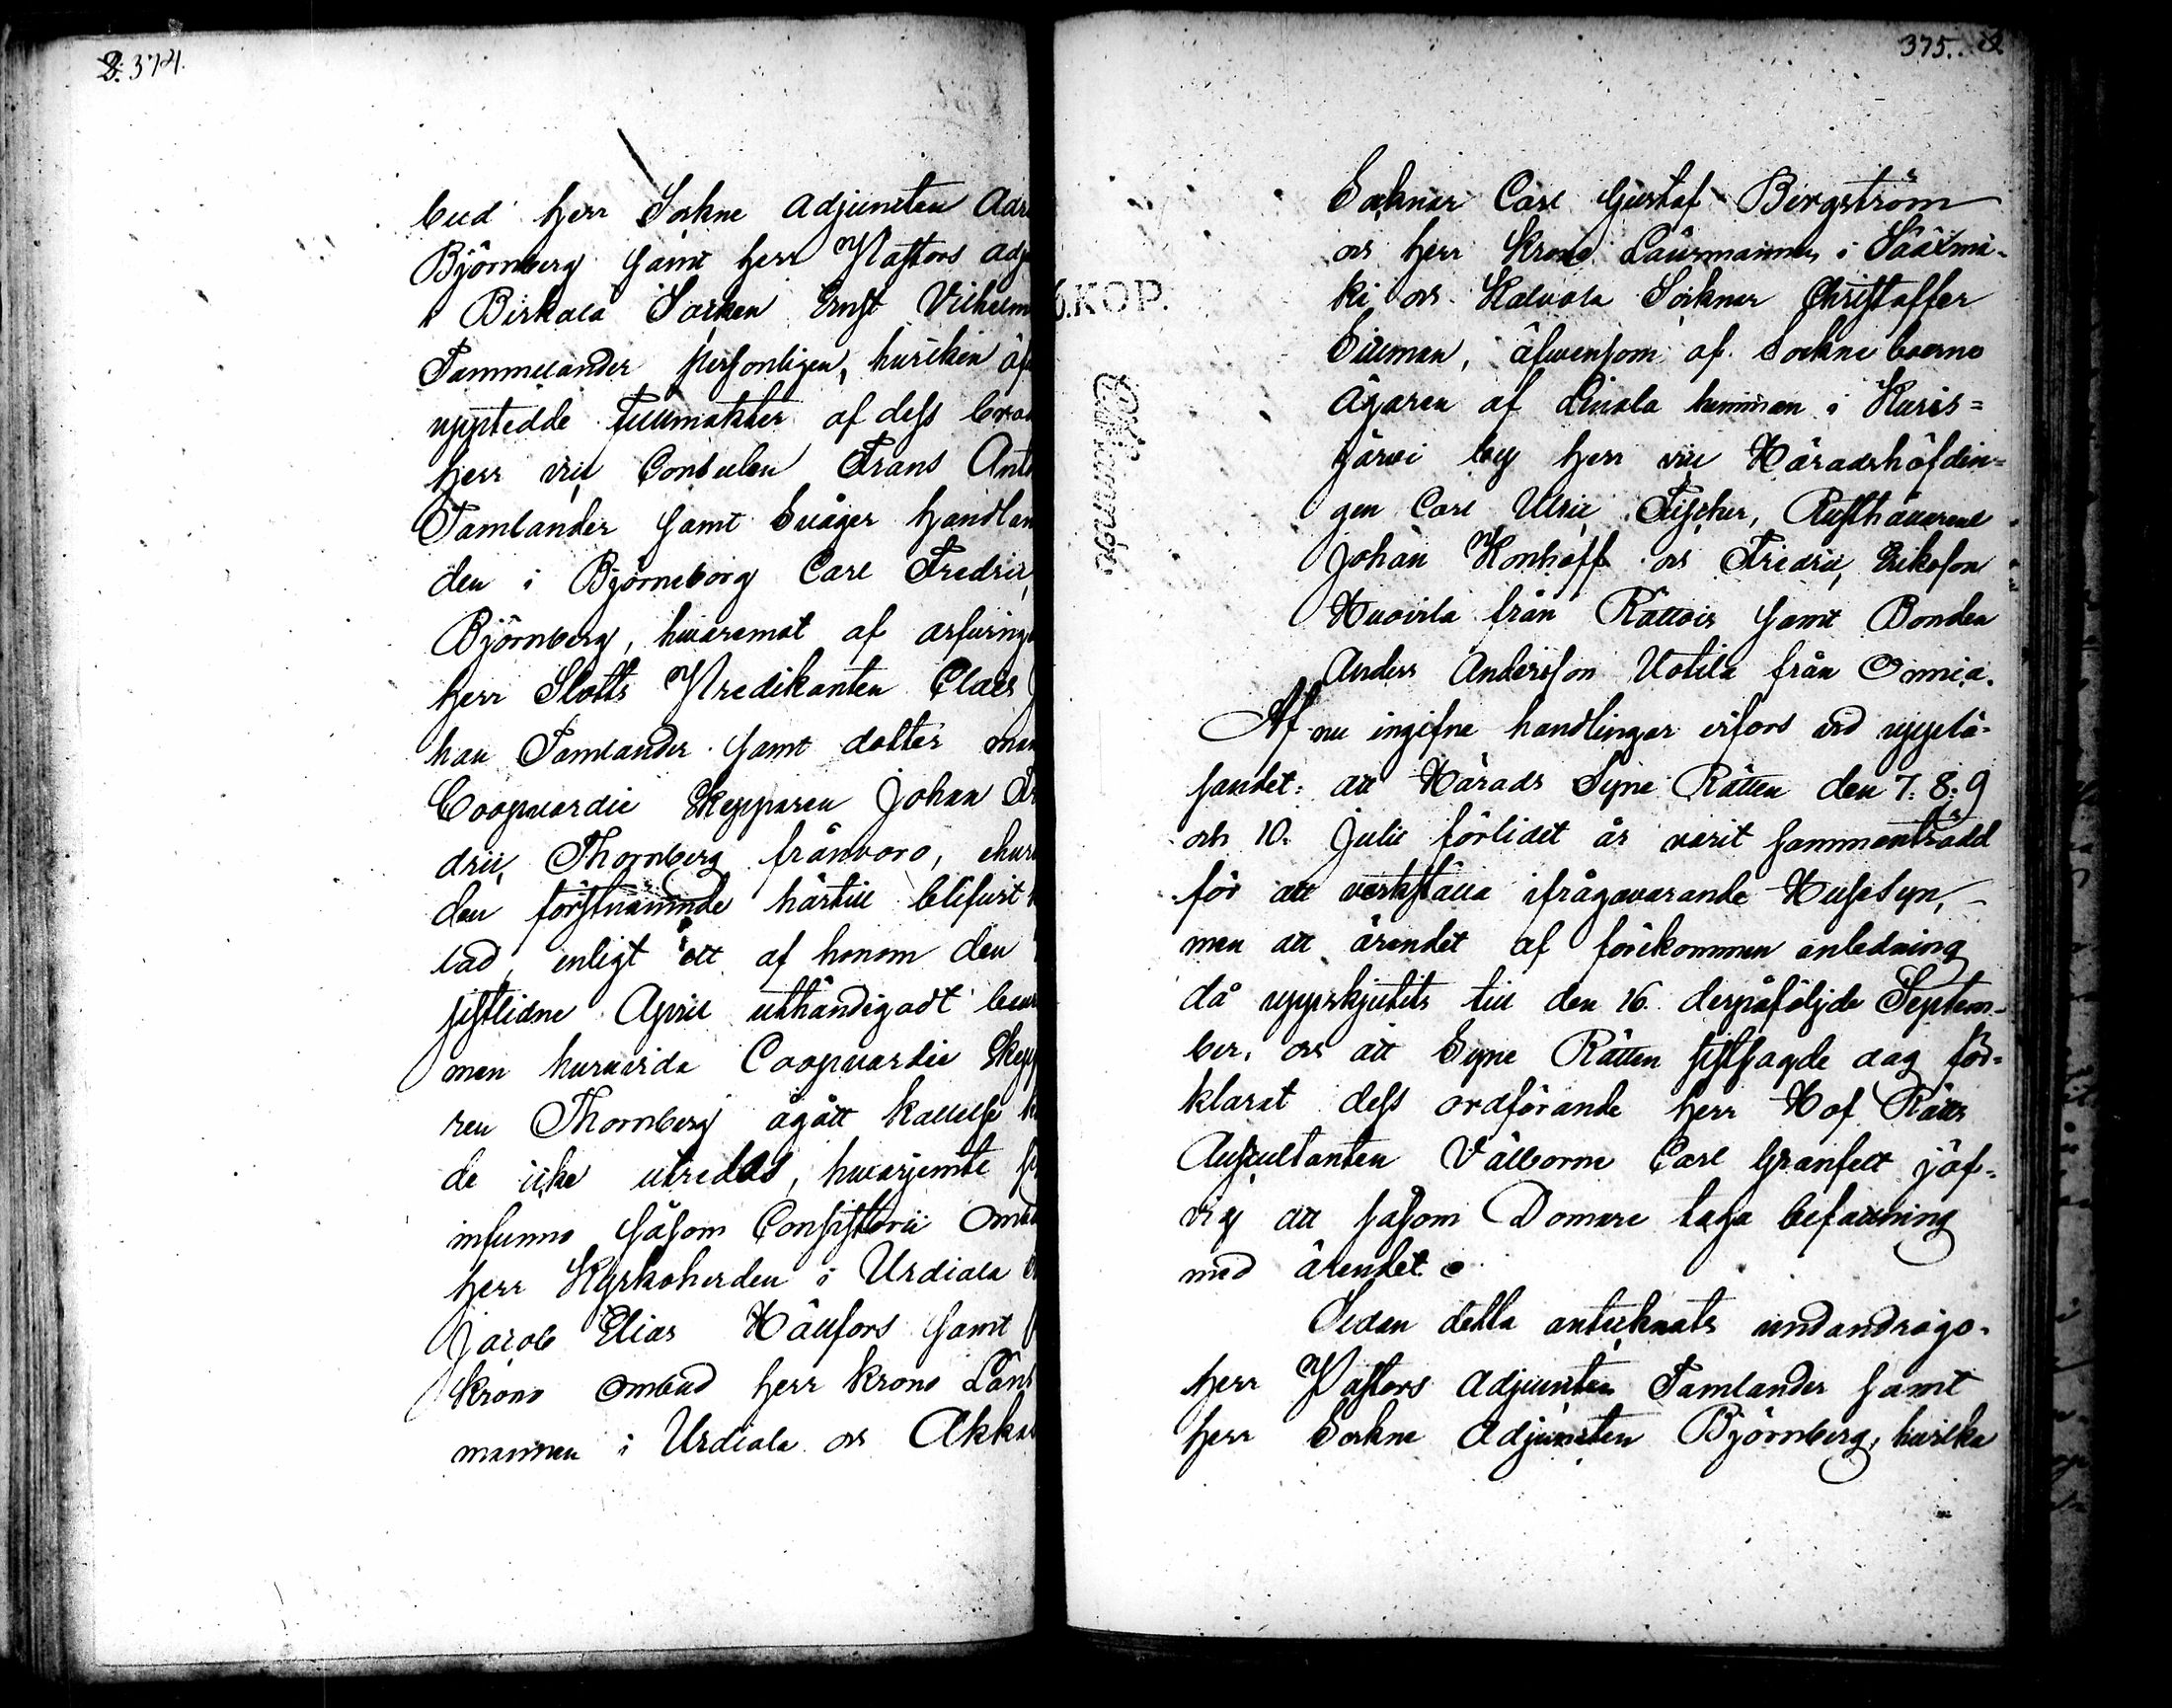 374.
bud herr Sockne Adjuncten Adr
Björnberg samt herr Pastors adj
i Birkala Socken Ernst Vilhelm
Tammelander personligen, hvilken äf
upptedde fullmakter af dess bro
herr vice Consulen Frans Ant
Tamlander samt Svåger handlan
den i Björneborg Carl Fredric
Björnberg, hvaremot af arfving
herr Slotts Predikanten Claes
han Tamlander samt dotter man
Coopvardie Skepparen Johan Fr
dric Thornberg frånvoro, ehur
den förstnämnde härtill blifvit
lad enligt ett af honom den
sistlidne April uthändigadt bevi
men huruvida Coopvardie Skepp
ren Thornberg ägått kallelse k
de icke utredas, hvarjemte
infunno såsom Consistorii Omb
herr Kyrkoherden i Urdiala
Jacob Elias Hällfors samt
Krono ombud herr Krono Läns
mannen i Urdiala och Akka
375.
6.KOP.
Socknar Carl Gustaf Bergström
och herr Krono Länsmannen i Sääxmä-
ki och Kalvola Socknar Christoffer
Eillman, äfvensom af Sockneboerne
Ägaren af Anola hemman i Kuris=
järvi by herr vice Häradshöfdin=
gen Carl Ulric Fischer, Rusthållarene
Johan Konhoff och Fredric Eriksson
Huovila från Rättois samt Bonden
Anders Andersson Uotila från Onnia.
Af nu ingifne handlingar erfors vid upplä-
sandet: att Härads Syne Rätten den 7. 8. 9
och 10. Julii förlidet år varit sammanträdd
för att verkställa ifrågavarande Husesyn,
men att ärendet af förekommen anledning
då uppskjutits till den 16. derpåföljde Septem-
ber, och att Syne Rätten sistsagde dag för-
klarat dess ordförande herr Hof Rätts
Auscultanten Välborne Carl Granfelt jäf-
vig att såsom Domare taga befattning
med ärendet.
Sedan detta antecknats undandrogo
herr Pastors Adjuncten Tamlander samt
herr Sockne Adjuncten Björnberg, hvilka